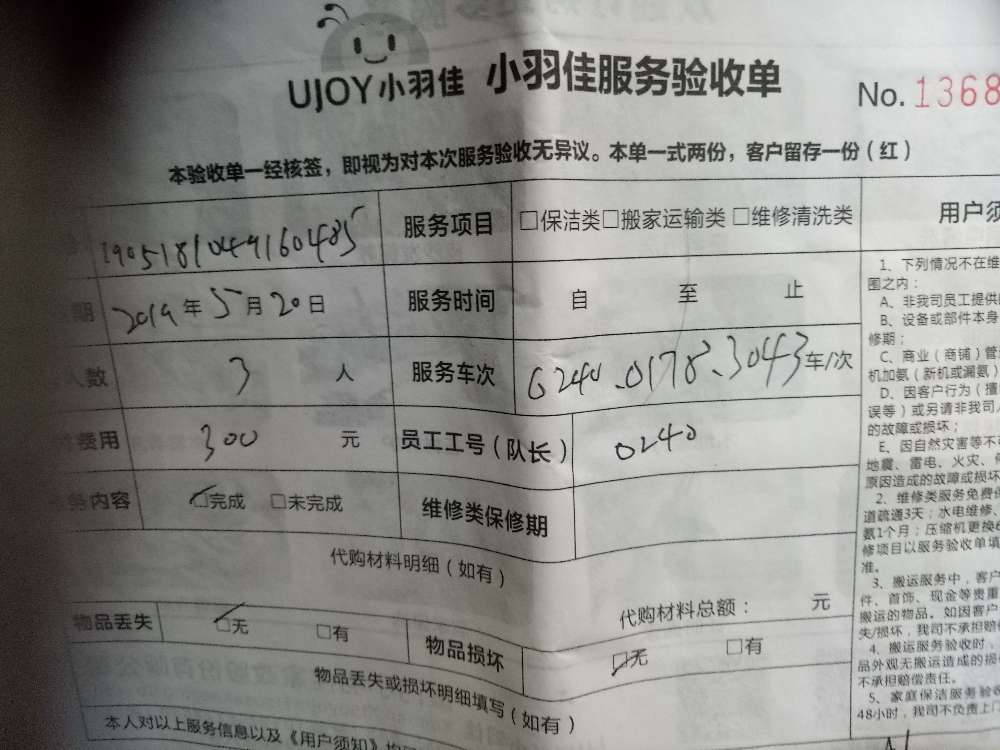 UJOY小羽佳 小羽佳服务验收单 No.1368
本验收单一经核签，即视为对本次服务验收无异议。本单一式两份，客户留存一份（红）
1905181049160485 服务项目 □保洁类□搬家运输类 □维修清洗类 用户须
期 2019年5月20日 服务时间 自 至 止
人数 3 人 服务车次 0240、0178、3043车/次
费用 300 元 员工工号（队长） 0240
务内容 ☑完成 □未完成 维修类保修期
代购材料明细（如有）
代购材料总额： 元
物品丢失 ☑无 □有 物品损坏 ☑无 □有
物品丢失或损坏明细填写（如有）
本人对以上服务信息以及《用户须知》均
1、下列情况不在维
围之内：
A、非我司员工提供
B、设备或部件本身
修期；
C、商业（商铺）管
机加氨（新机或漏氨）
D、因客户行为（擅
误等）或另请非我司人
的故障或损坏；
E、因自然灾害等不
地震、雷电、火灾、
原因造成的故障或损坏
2、维修类服务免费
道疏通3天；水电维修、
氨1个月；压缩机更换
修项目以服务验收单填
准。
3、搬运服务中，客户
件、首饰、现金等贵重
搬运的物品。如因客户
失/损坏，我司不承担赔
4、搬运服务验收时，
品外观无搬运造成的损
不承担赔偿责任。
5、家庭保洁服务验收
48小时，我司不负责上门